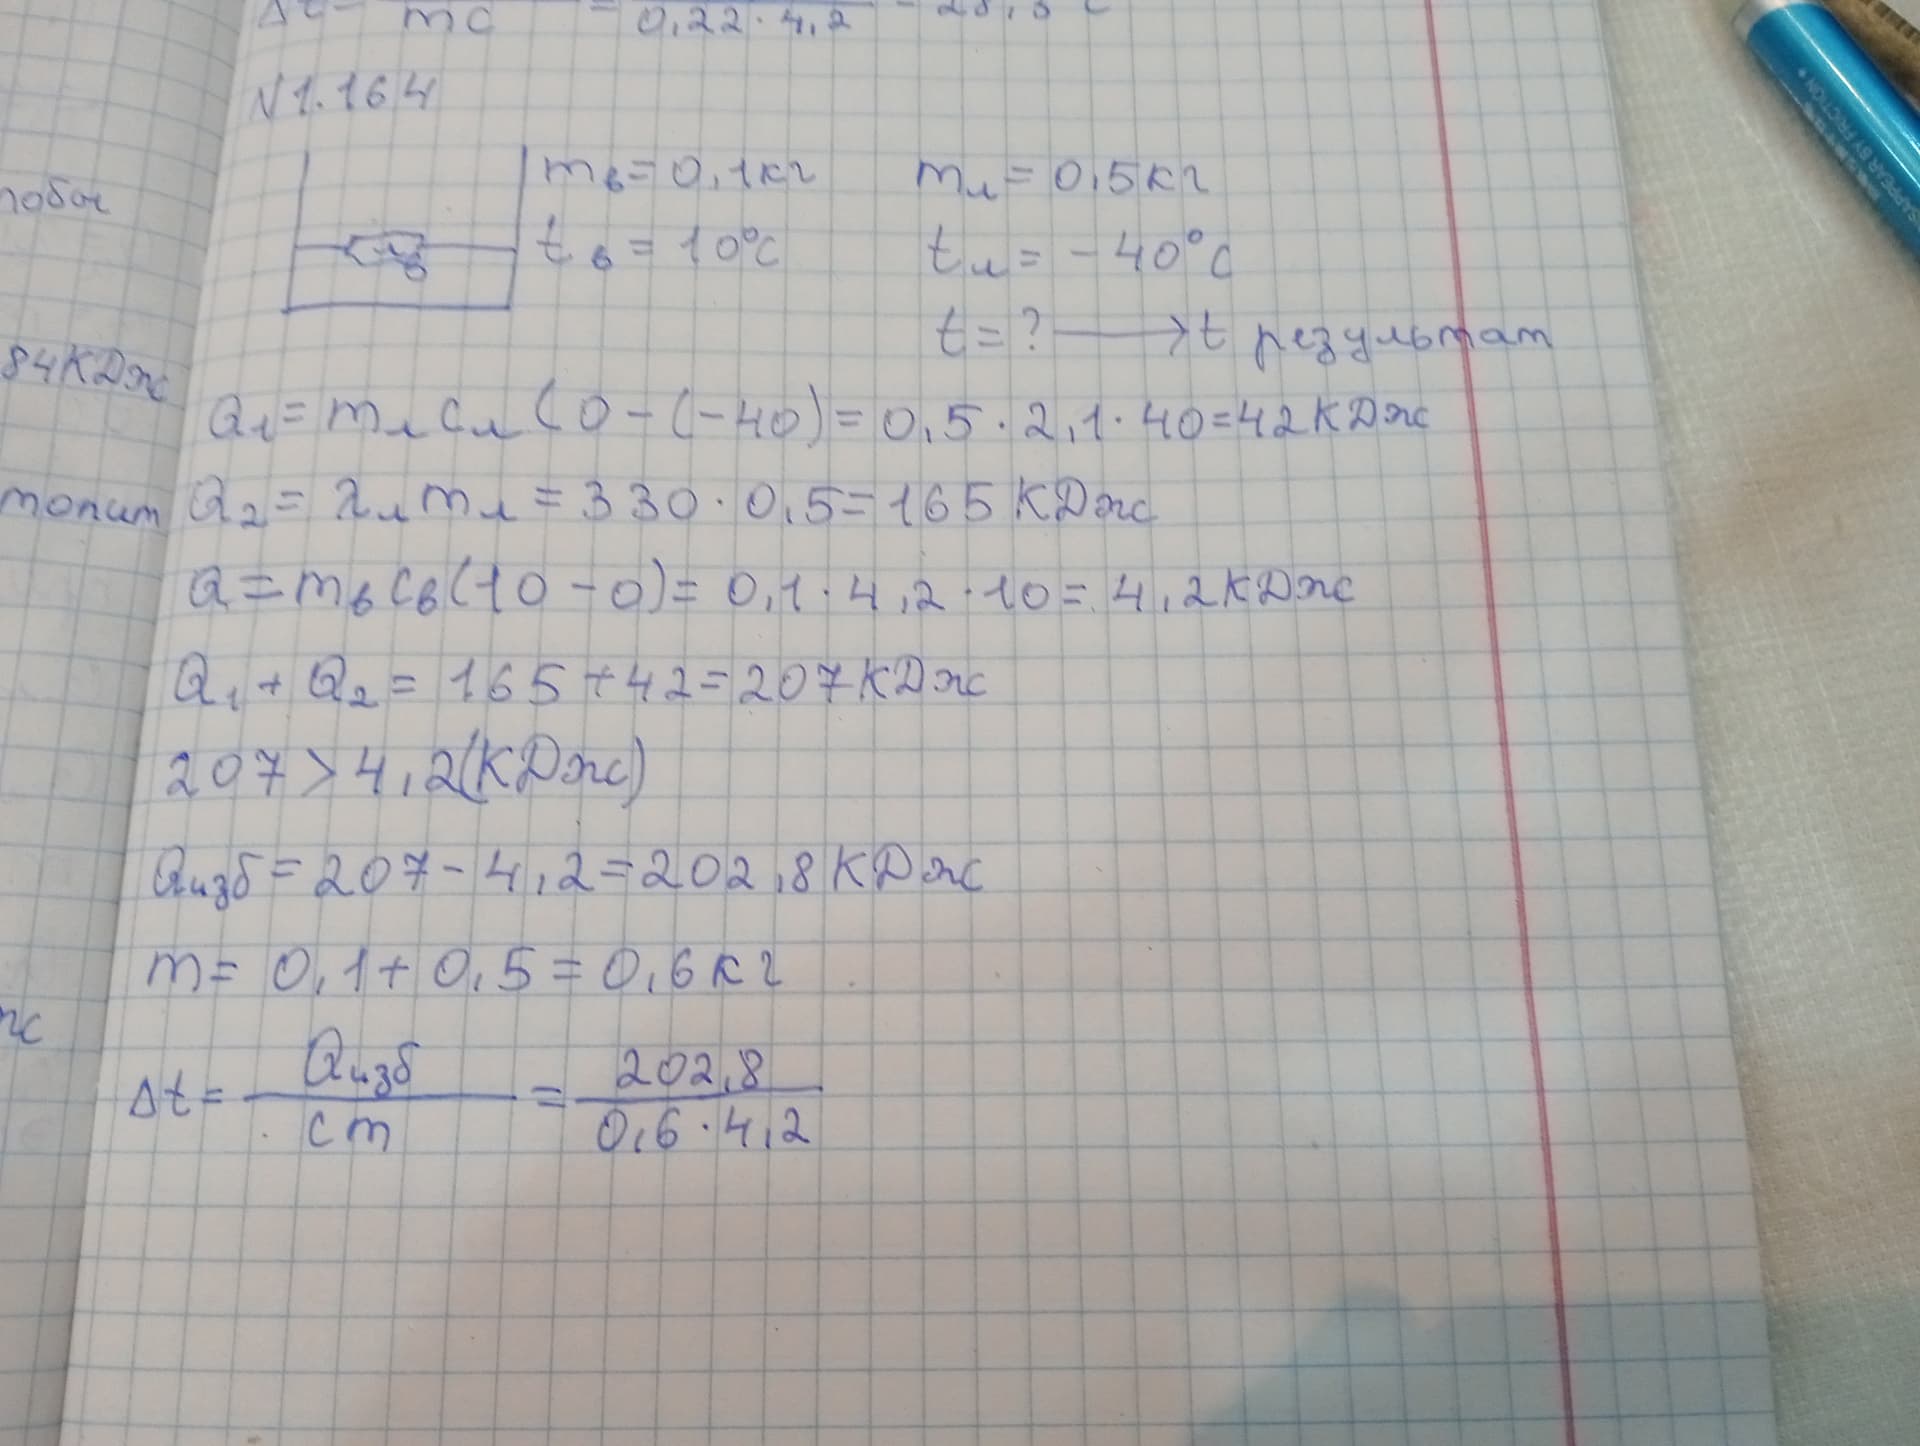 0,22 · 4,2
N1.164
mв = 0,1кг mл = 0,5кг
tв = 10°C tл = -40°C
t = ? ⟶ t результат
84КДж
Q1 = mл cл (0 - (-40) = 0,5 · 2,1 · 40 = 42КДж
топит
Q2 = λл mл = 330 · 0,5 = 165 КДж
Q = mв cв (10 - 0) = 0,1 · 4,2 · 10 = 4,2КДж
Q1 + Q2 = 165 + 42 = 207КДж
207 > 4,2(КДж)
Qизб = 207 - 4,2 = 202,8 КДж
m = 0,1 + 0,5 = 0,6кг
Δt = Qизб / cm = 202,8 / 0,6 · 4,2